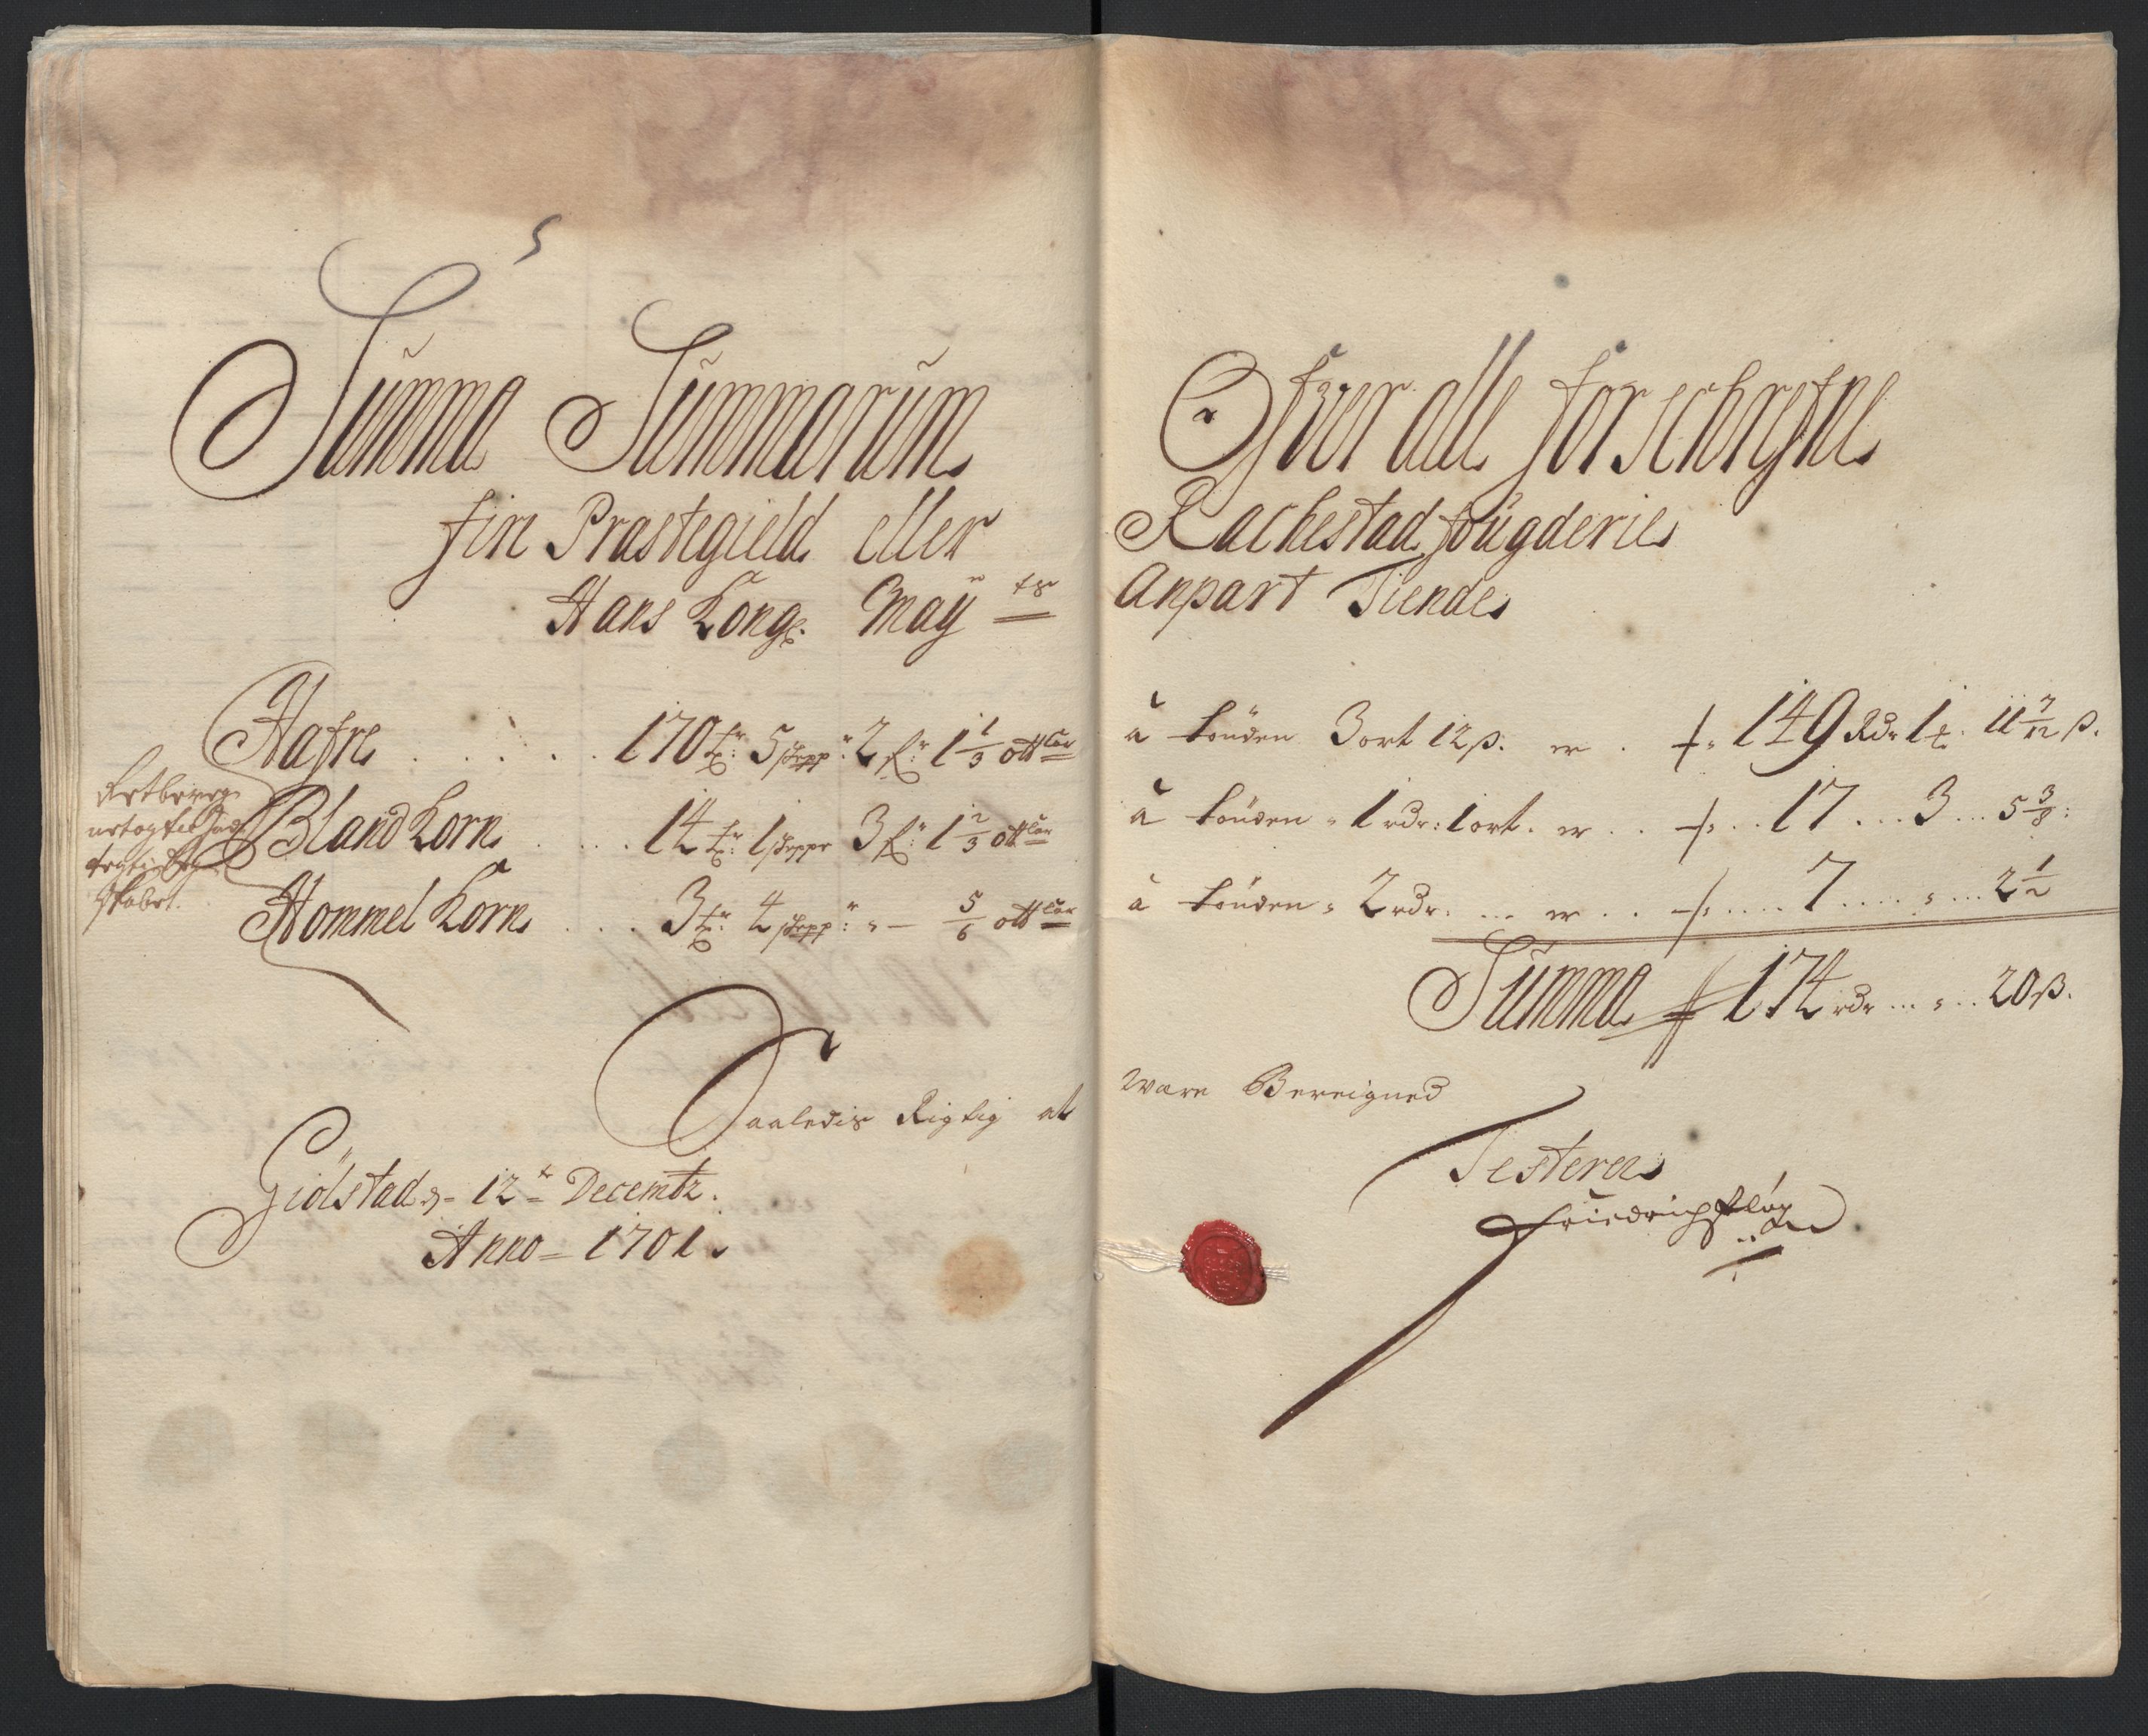 5
Summa Summarum
fire Prastegield eller
Hans Kongl: May ts
Hafre . . . . . 170 tr: 5 schepp: 2 fr: 1 1/3 ott lar
Bland Korn . . . . 14 tr: 1 scheppe 3 fr: 1 2/3 ott lar
Hommel Korn . . . 3 tr: 4 schepp: " — 5/6 ott lar
Saaledis Rigtig at
Giölstad d- 12 t Decembr.
Anno - 1701.
Ofver alle forschrefne
Rachestad fougderies
Anpart Tiende
à tönden 3 ort 12 ß. er . 149 Rdr 1 ort. 11 7/12 ß.
à tönden " 1 rdr: 1 ort. er . . 17 ... 3 ... 5 3/8:
à tönden " 2 rdr. ... er . . 7 .... " ... 2 1/2
Summa 174 rdr ... " .. 20 ß.
ware Bereigned
Testerer
Friedrich